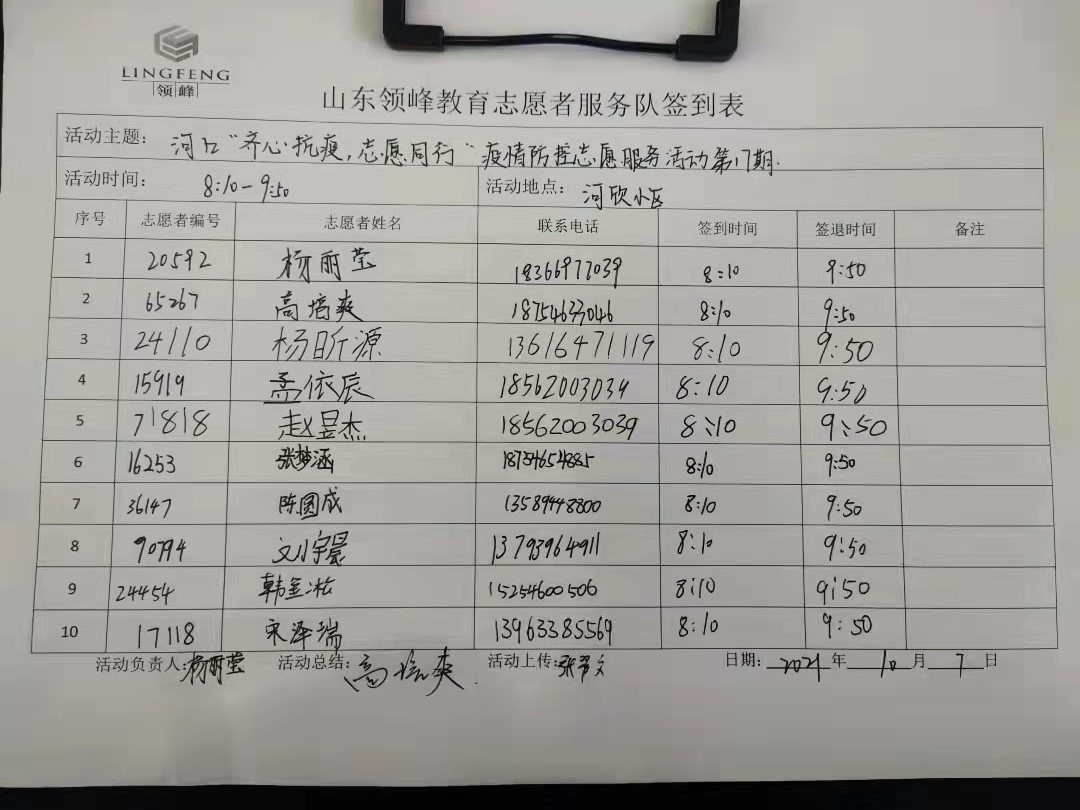 LINGFENG
领峰
山东领峰教育志愿者服务队签到表
活动主题: 河口"齐心抗疫,志愿同行"疫情防控志愿服务活动第17期.
活动时间: 8:10-9:50 活动地点: 河欣小区
序号 志愿者编号 志愿者姓名 联系电话 签到时间 签退时间 备注
1 20592 杨丽莹 18366977039 8:10 9:50
2 65267 高培爽 18754633046 8:10 9:50
3 24110 杨昕源 13616471119 8:10 9:50
4 15919 孟依辰 18562003039 8:10 9:50
5 71818 赵昱杰 18562003039 8:10 9:50
6 16253 张梦涵 8:10 9:50
7 36147 陈圆成 13589448800 8:10 9:50
8 90794 刘宇晨 13793964911 8:10 9:50
9 24454 韩金凇 15254600506 8:10 9:50
10 17118 宋泽瑞 13963385569 8:10 9:50
活动负责人:杨丽莹 活动总结:高培爽 活动上传: 日期: 2021 年 10 月 7 日